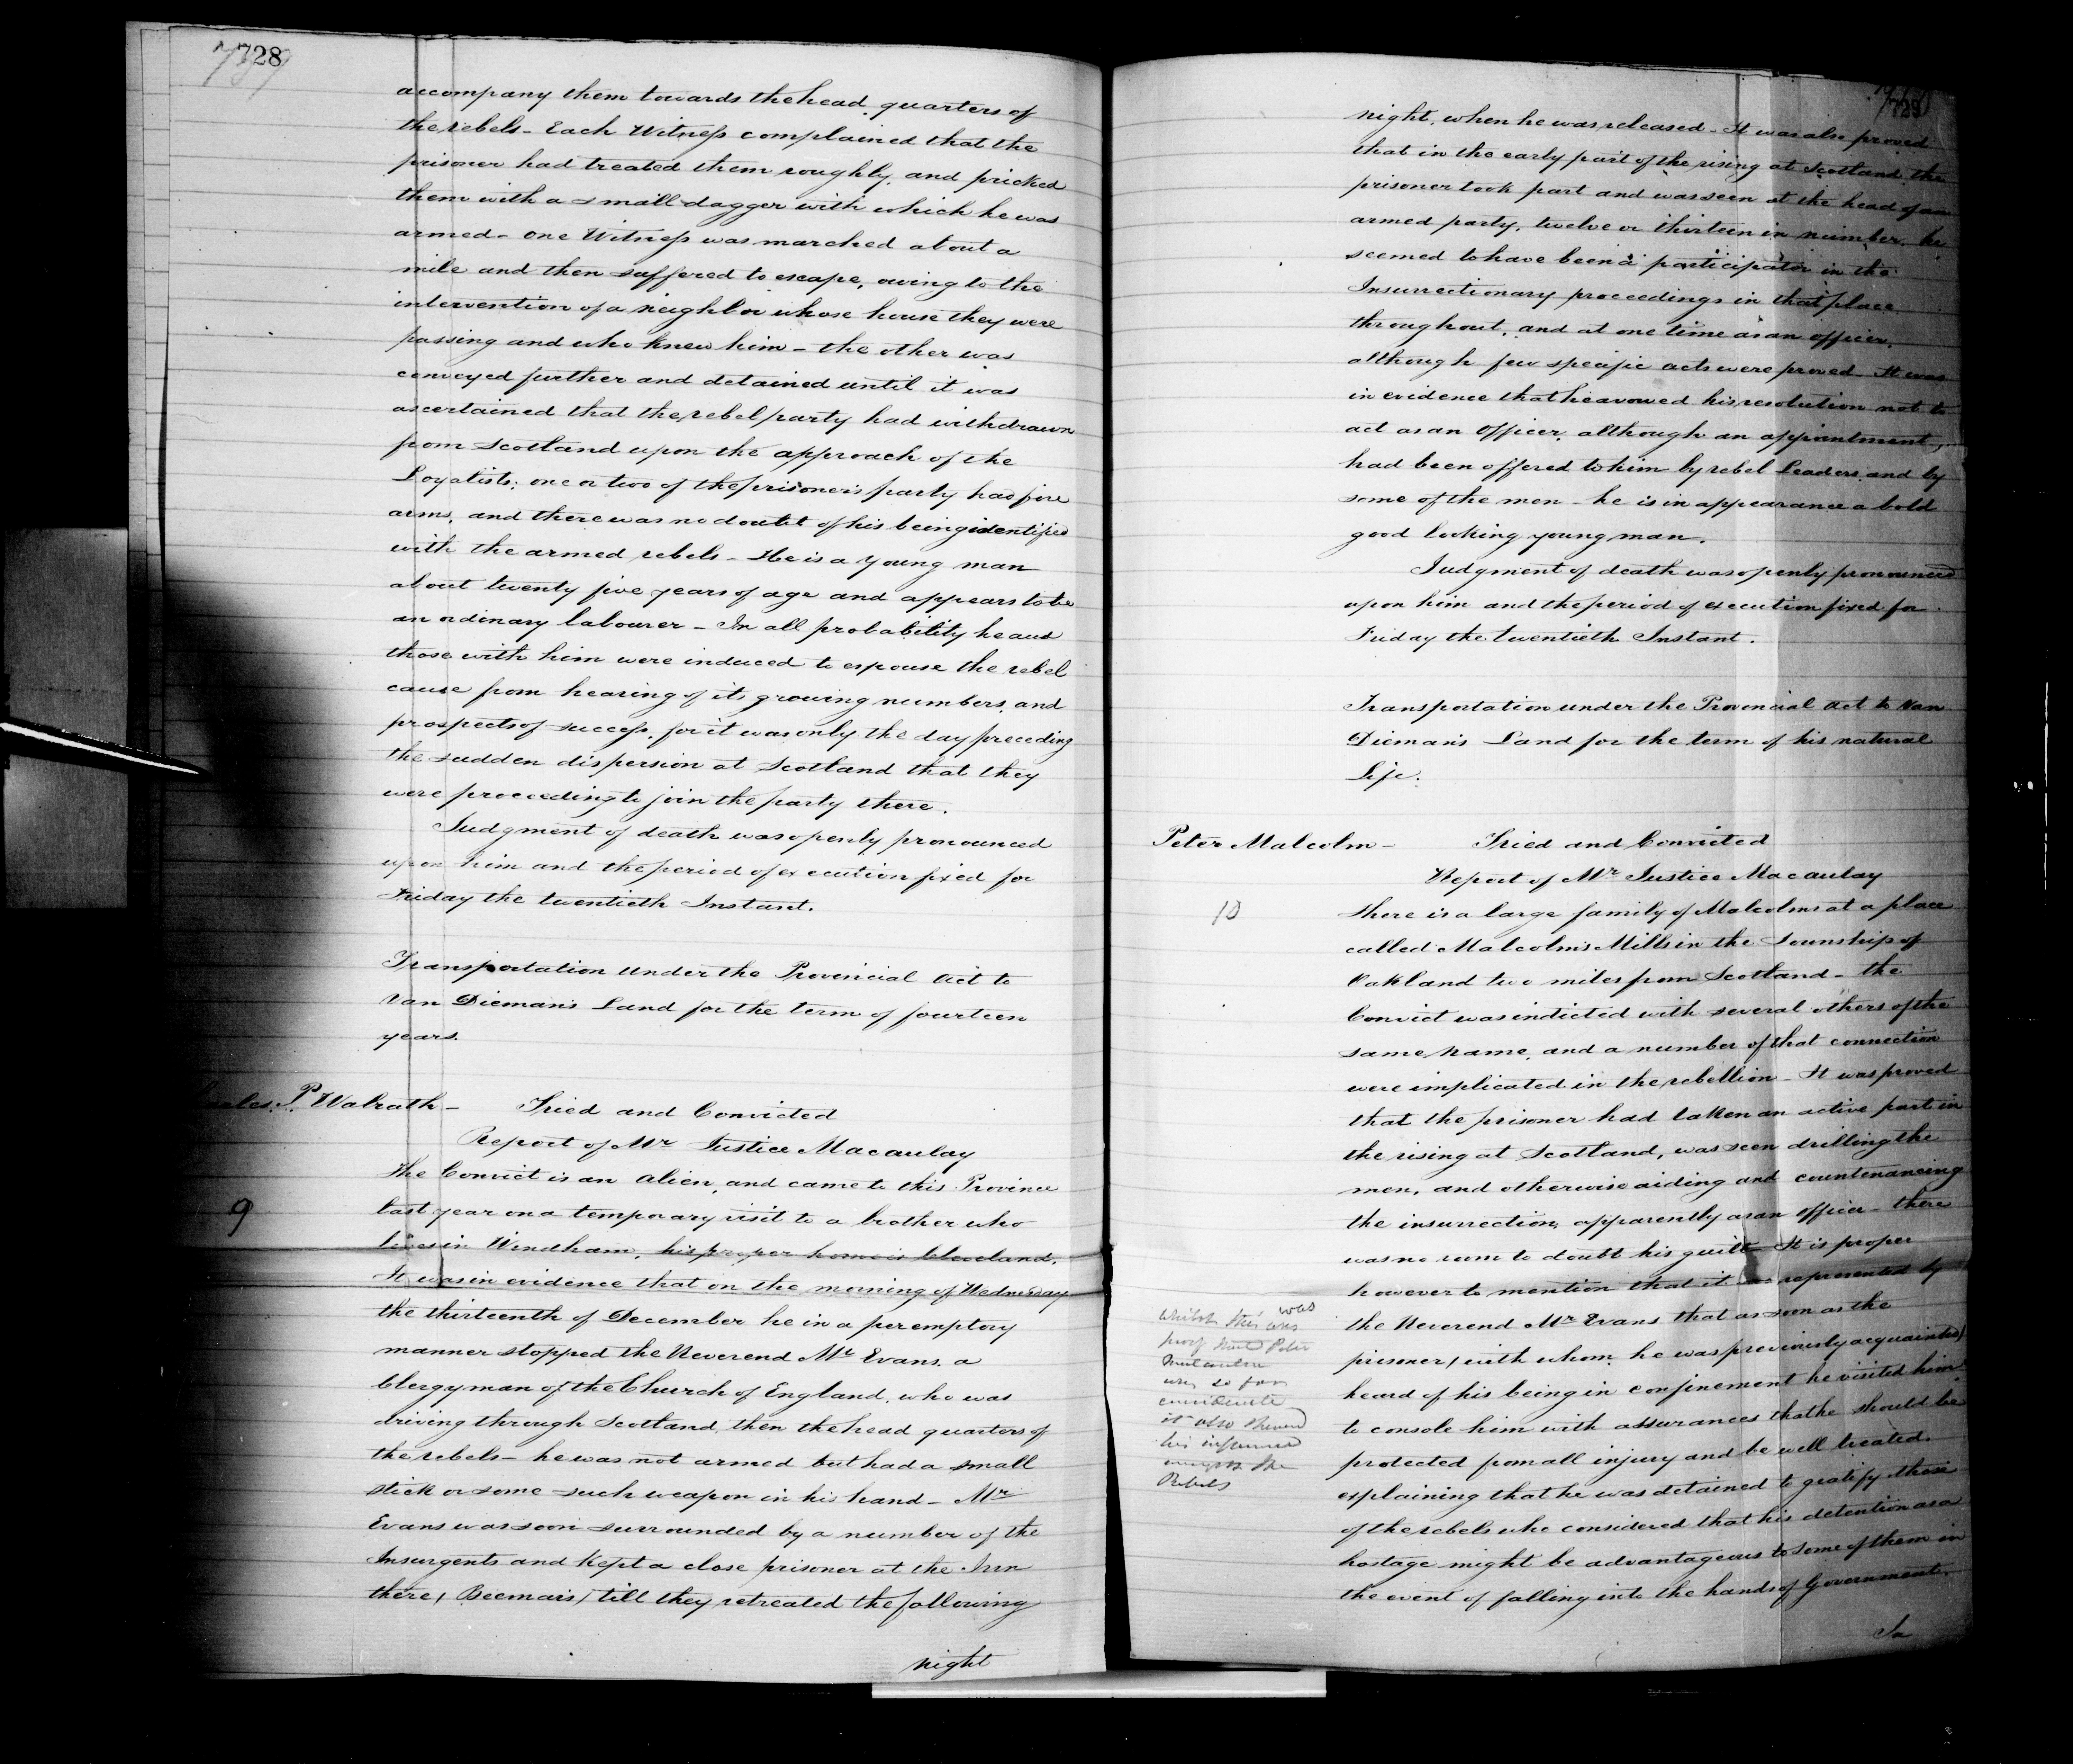 728
accompany them towards the head quarters of
the rebels - Each Witness complained that the
prisoner had treated them roughly, and pricked
them with a small dagger with which he was
armed - one Witness was marched about a
mile and then suffered to escape, owing to the
intervention of a neighbor whose house they were
passing and who knew him - the other was
conveyed further and detained until it was
ascertained that the rebel party had withdrawn
from Scotland upon the approach of the
Loyalists; one or two of the prisoner's party had fire
arms, and there was no doubt of his being identified
with the armed rebels - He is a young man
about twenty five years of age and appears to be
an ordinary labourer - In all probability he and
those with him were induced to espouse the rebel
cause from hearing of its growing numbers, and
prospects of success, for it was only the day preceding
the sudden dispersion at Scotland that they
were proceeding to join the party there.
Judgment of death was openly pronounced
upon him and the period of execution fixed for
Friday the twentieth Instant.
Transportation under the Provincial Act to
Van Dieman's Land for the term of fourteen
years.
P. Walrath - Tried and Convicted
Report of Mr Justice Macaulay
9
The Convict is an alien, and came to this Province
last year on a temporary visit to a brother who
lives in Windham, his proper home is Cleveland.
It was in evidence that on the morning of Wednesday
the thirteenth of December he in a peremptory
manner stopped the Reverend Mr Evans, a
Clergyman of the Church of England, who was
driving through Scotland, then the head quarters of
the rebels - he was not armed but had a small
stick or some such weapon in his hand - Mr
Evans was soon surrounded by a number of the
Insurgents and Kept a close prisoner at the Inn
there, (Beemans) till they retreated the following
night
729
night, when he was released - It was also proved
that in the early part of the rising at Scotland the
prisoner took part and was seen at the head of an
armed party, twelve or thirteen in number, he
seemed to have been a participator in the
Insurrectionary proceedings in that place
throughout, and at one time as an officer,
although few specific acts were proved - It was
in evidence that he avowed his resolution not to
act as an Officer, although an appointment,
had been offered to him by rebel Leaders, and by
some of the men - he is in appearance a bold
good looking young man.
Judgment of death was openly pronounced
upon him and the period of execution fixed for
Friday the twentieth Instant.
Transportation under the Provincial Act to Van
Dieman's Land for the term of his natural
Life.
Peter Malcolm - Tried and Convicted
Report of Mr Justice Macaulay
10
There is a large family of Malcolms at a place
called Malcolm's Mills in the Township of
Oakland two miles from Scotland - the
Convict was indicted with several others of the
same name, and a number of that connection
were implicated in the rebellion - It was proved
that the prisoner had taken an active part in
the rising at Scotland, was seen drilling the
men, and otherwise aiding and countenancing
the insurrection, apparently as an officer - there
was no room to doubt his guilt - It is proper
however to mention that it was represented by
the Reverend Mr Evans that as soon as the
prisoner, (with whom he was previously acquainted)
heard of his being in confinement he visited him
to console him with assurances that he should be
protected from all injury and be well treated.
explaining that he was detained to gratify those
of the rebels who considered that his detention as a
hostage might be advantageous to some of them in
the event of falling into the hands of Government.
In
whilst this was
proof that Peter
was so far
considerate
it also shewed
his influence
amongst the
Rebels